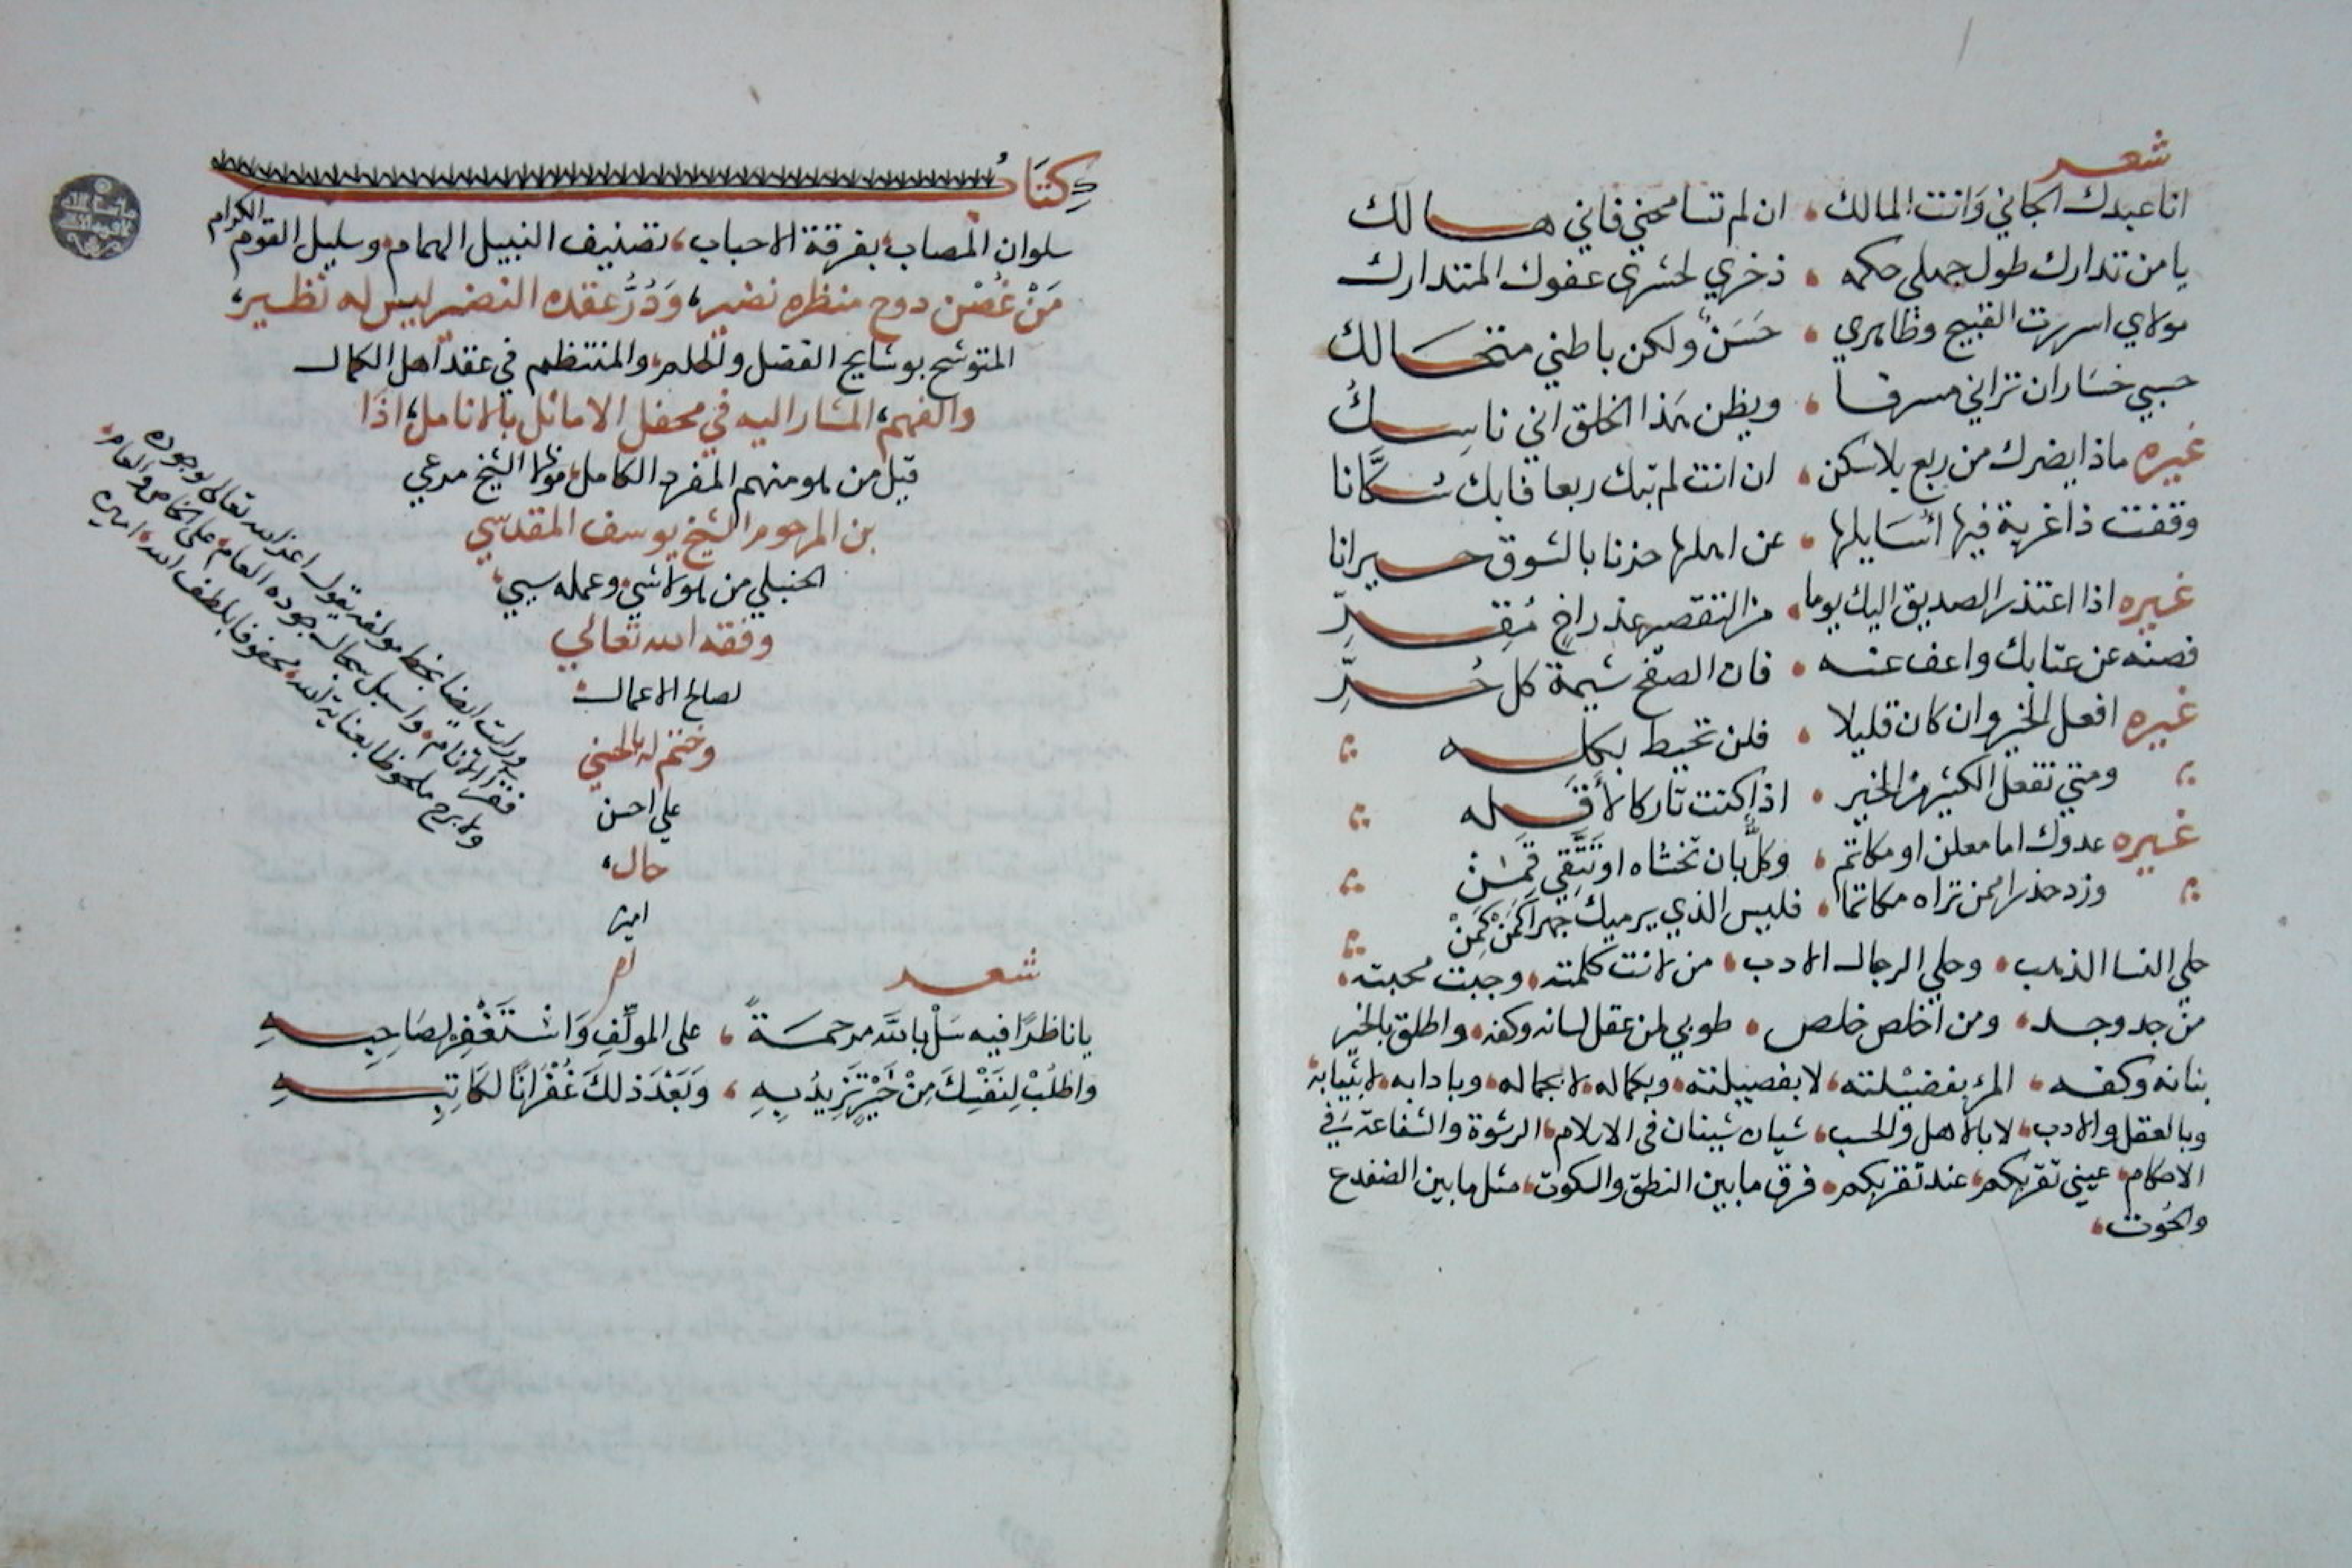 شعر
انا عبدك الجاني وانت المالك ، ان لم تسامحني فاني هالك
يا من تدارك طول جهلي حكمه ، ذخري لحشري عفوك المتدارك
مولاي اسررت القبيح وظاهري ، حَسَنٌ ولكن باطني متحالك
حسبي خسارا ان تراني مسرفا ، ويظن هذا الخلق اني ناسك
غيره ماذا يضرك من ربع بلا سكن ، ان انت لم تبك ربعا فابك سكَّانا
وقفت ذا غربة فيها اسَايلها ، عن اهلها حزنا بالشوق حيرانا
غيره اذا اعتذر الصديق اليك يوما ، من التقصير عذر اخٍ مُقِرِّ
فصنه عن عتابك واعف عنه ، فان الصفح شيمة كل حُرِّ
غيره افعل الخير وان كان قليلا ، فلن تحيط بكله
ومتي تفعل الكثير من الخير ، اذا كنت تاركا لأَقَلِه
غيره عدوك اما معلن او مكاتم ، وكلٌّ بان تخشاه او تَتَّقِي قَمِنْ
وزد حذرا ممن تراه مكاتما ، فليس الذي يرميك جهرا كَمَنْ كَمِنْ
حلي النسا الذهب ، وحلي الرجال الادب ، من لانت كلمته ، وجبت محبته ،
من جد وجد ، ومن اخلص خلص ، طوبي لمن عقل لسانه وكفه ، واطلق بالخير
بنانه وكفه ، المرء بفضيلته ، لا بفصيلته ، وبكماله ، لا بجماله ، وبادابه ، لا بثيابه ،
وبالعقل والادب ، لا بالاهل والحسب ، شيان شينان في الاسلام ، الرشوة والشفاعة في
الاحكام ، عيني تقربكم ، عند تقربكم ، فرق ما بين النطق والسكوت ، مثل ما بين الضفدع
والحُوت ،
كِتَابُ
سلوان المصاب ، بفرقة الاحباب ، تصنيف النبيل الهمام ، وسليل القوم الكرام
مَنْ غُصْن دوح منظره نضير ، وَدُرُّ عقده النضير ليس له نظير ،
المتوشح بوشايح الفضل والحلم ، والمنتظم في عقد اهل الكمال
والفهم ، المشار اليه في محفل الاماثل بالانامل ، اذا
قيل من هو منهم المفرد الكامل ، مولانا الشيخ مرعي
بن المرحوم الشيخ يوسف المقدسي
الحنبلي من هو لاشي ، وعمله سيي ،
وفقه الله تعالي
لصالح الاعمال
وختم له بالحسني
علي احسن
حال ،
امين
ام
ورايت ايضا بخط مولفه يقول اعز الله تعالي بوجوده
فقرا الانام ، واسبل سجال جوده العام ، علي الخاص والعام ،
ولا برح ملحوظا بعناية الله ، محفوفا بلطف الله ، امين
شعر
يا ناظرًا فيه سَلْ بالله مرحمةً ، على المولِّفِ وَاسْتَغْفِر لصَاحِبِهِ
واطلُبْ لِنَفْسِكَ مِنْ خَيْرٍ تَزِيدُ بِهِ ، وَبَعْدَ ذلكَ غُفْرَانًا لكَاتِبِهِ
ما شاء الله
لا قوة الا بالله